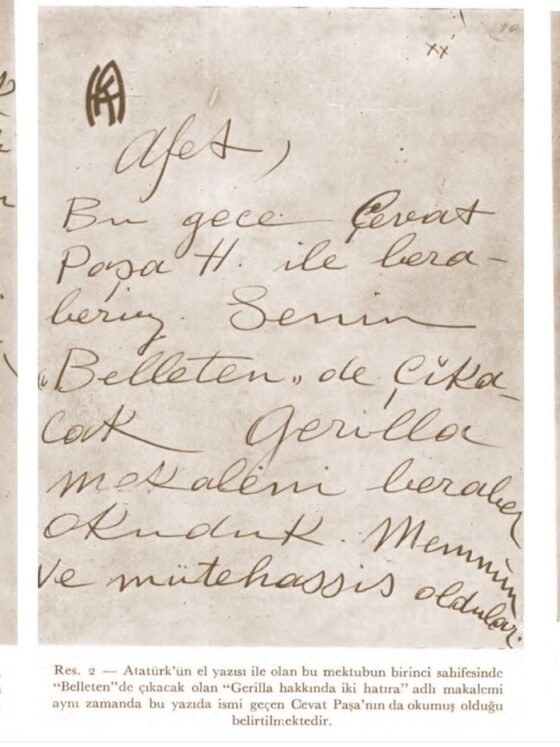 xx
Afet,
Bu gece Cevat
Paşa H. ile bera-
beriz. Senin
„Belleten„ de çıka-
cak Gerilla
mekaleni beraber
okuduk. Memnun
ve mütehassis oldular.
Res. 2 — Atatürk'ün el yazısı ile olan bu mektubun birinci sahifesinde
"Belleten"de çıkacak olan "Gerilla hakkında iki hatıra" adlı makalemi
aynı zamanda bu yazıda ismi geçen Cevat Paşa'nın da okumuş olduğu
belirtilmektedir.